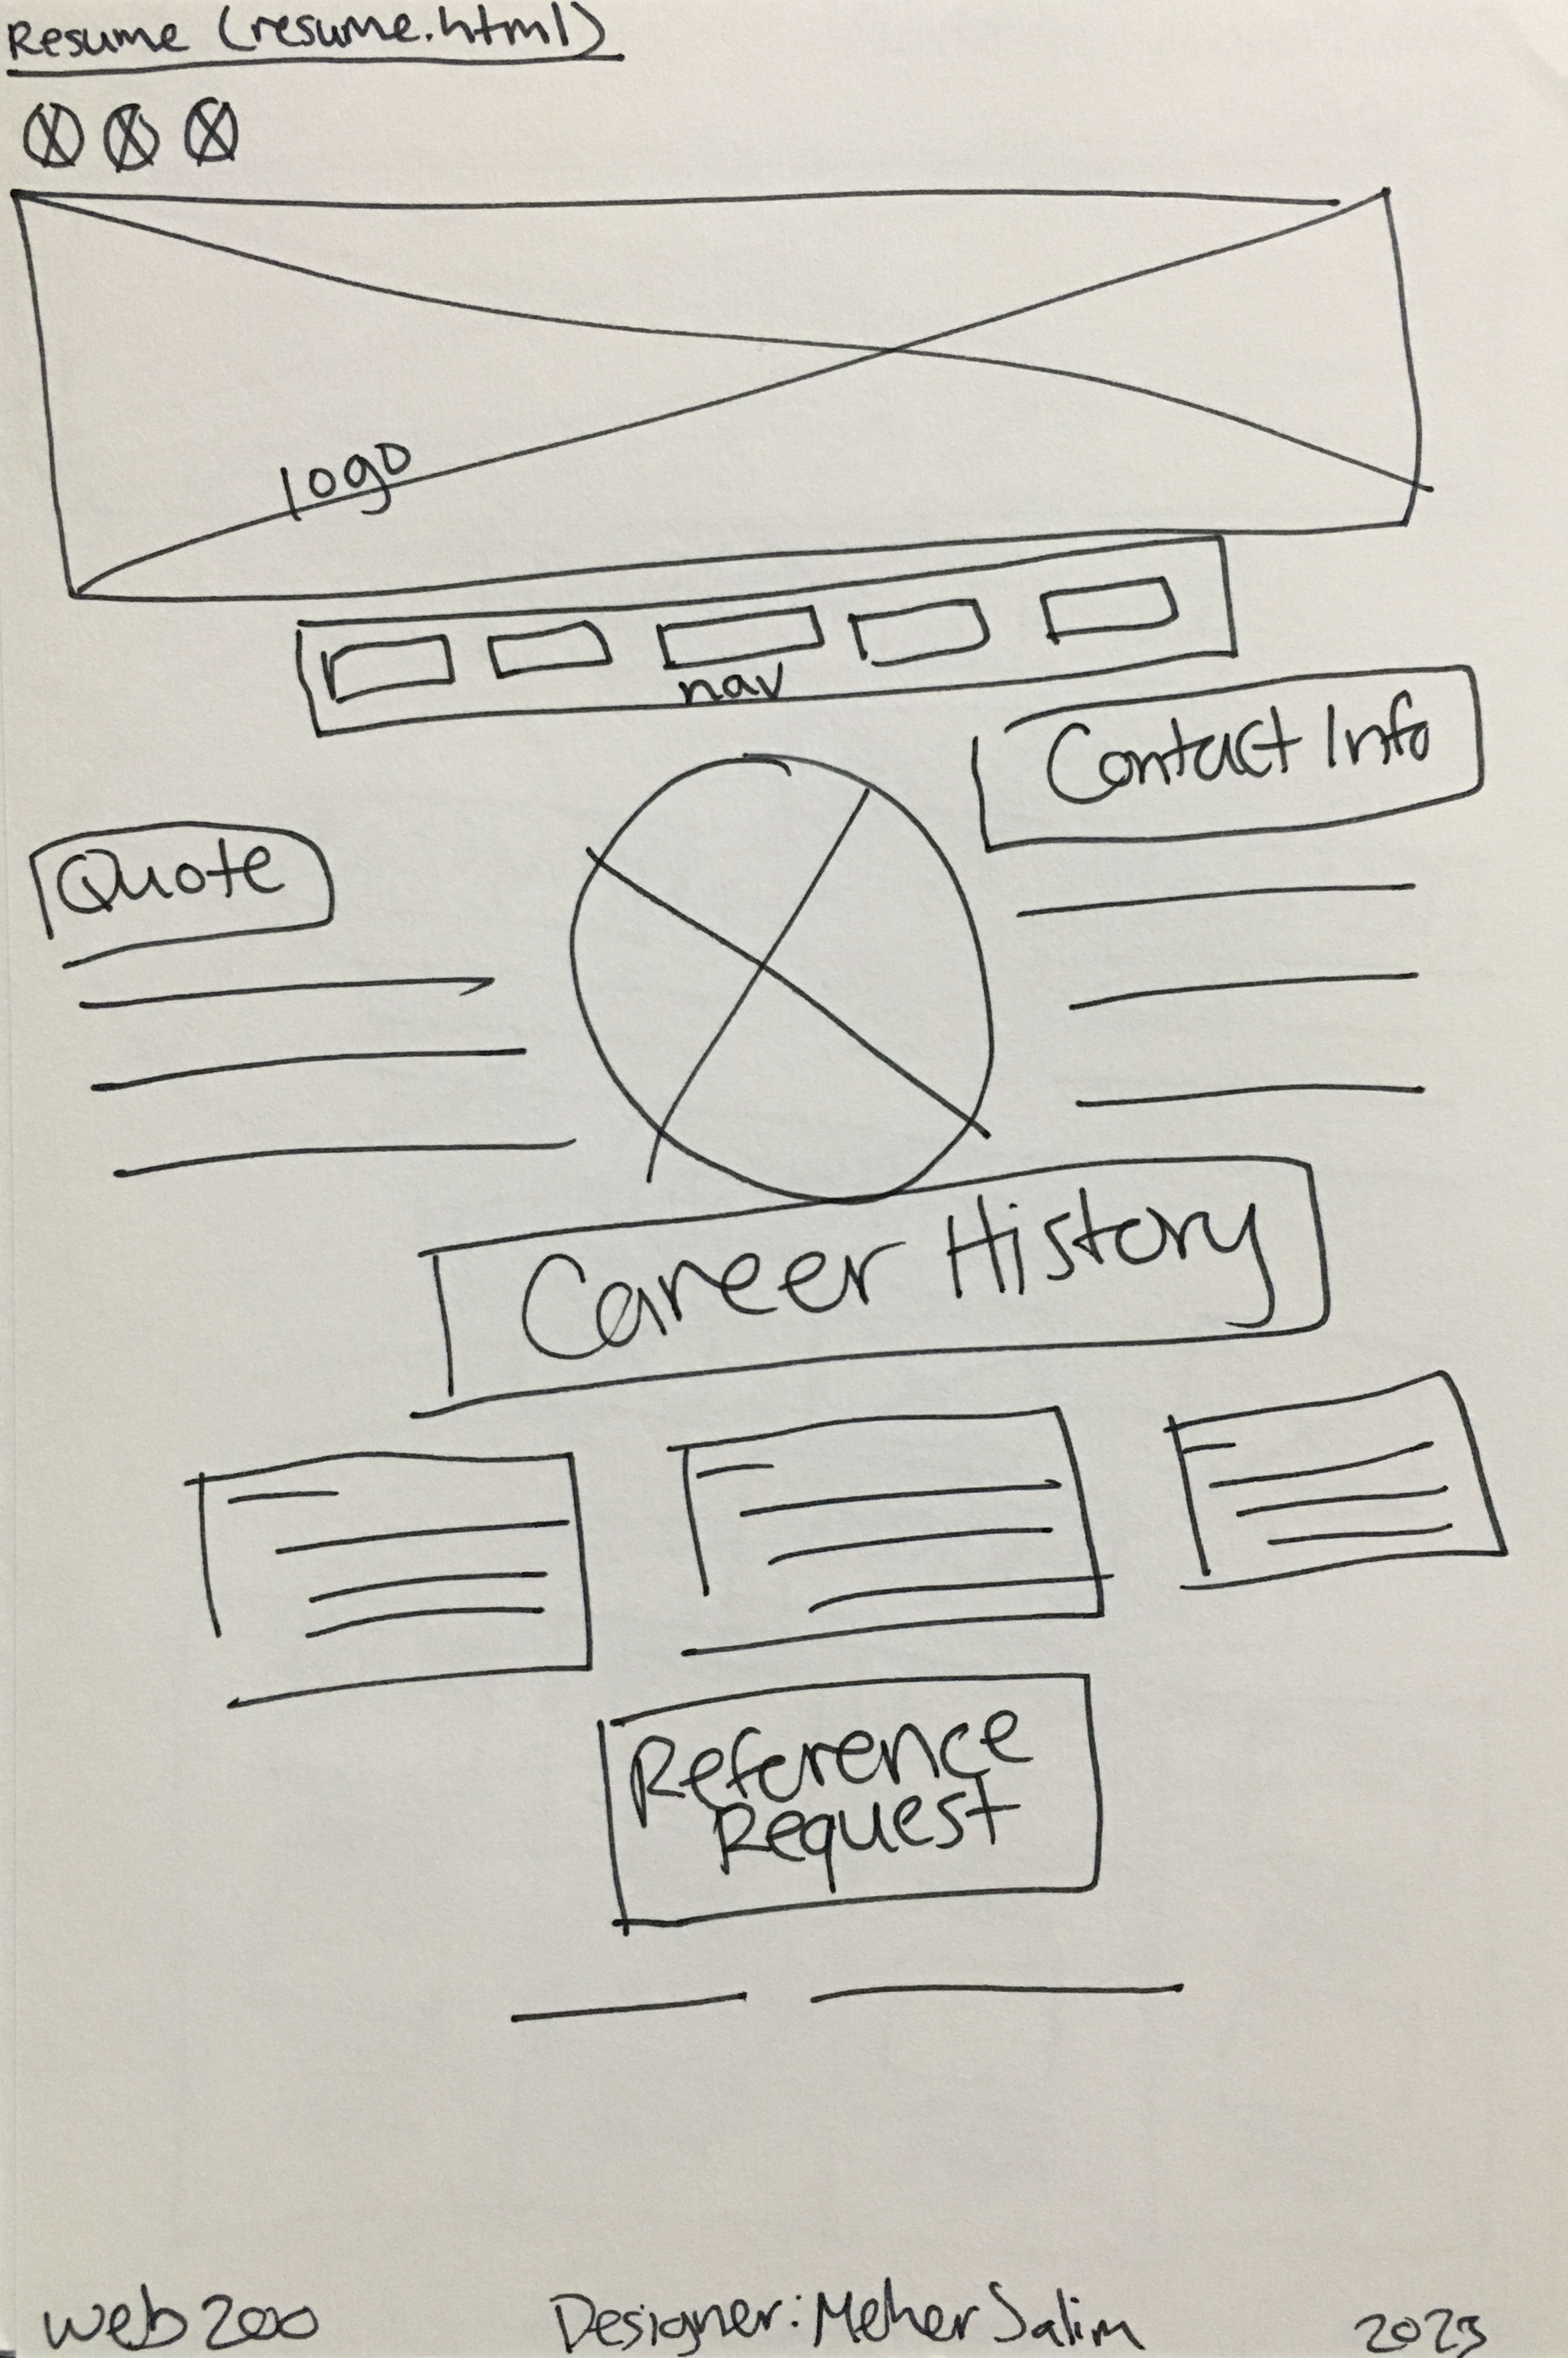 Resume (resume.html)
logo
nav
Contact Info
Quote
Career History
Reference
Request
web200 Designer: Meher Salim 2023